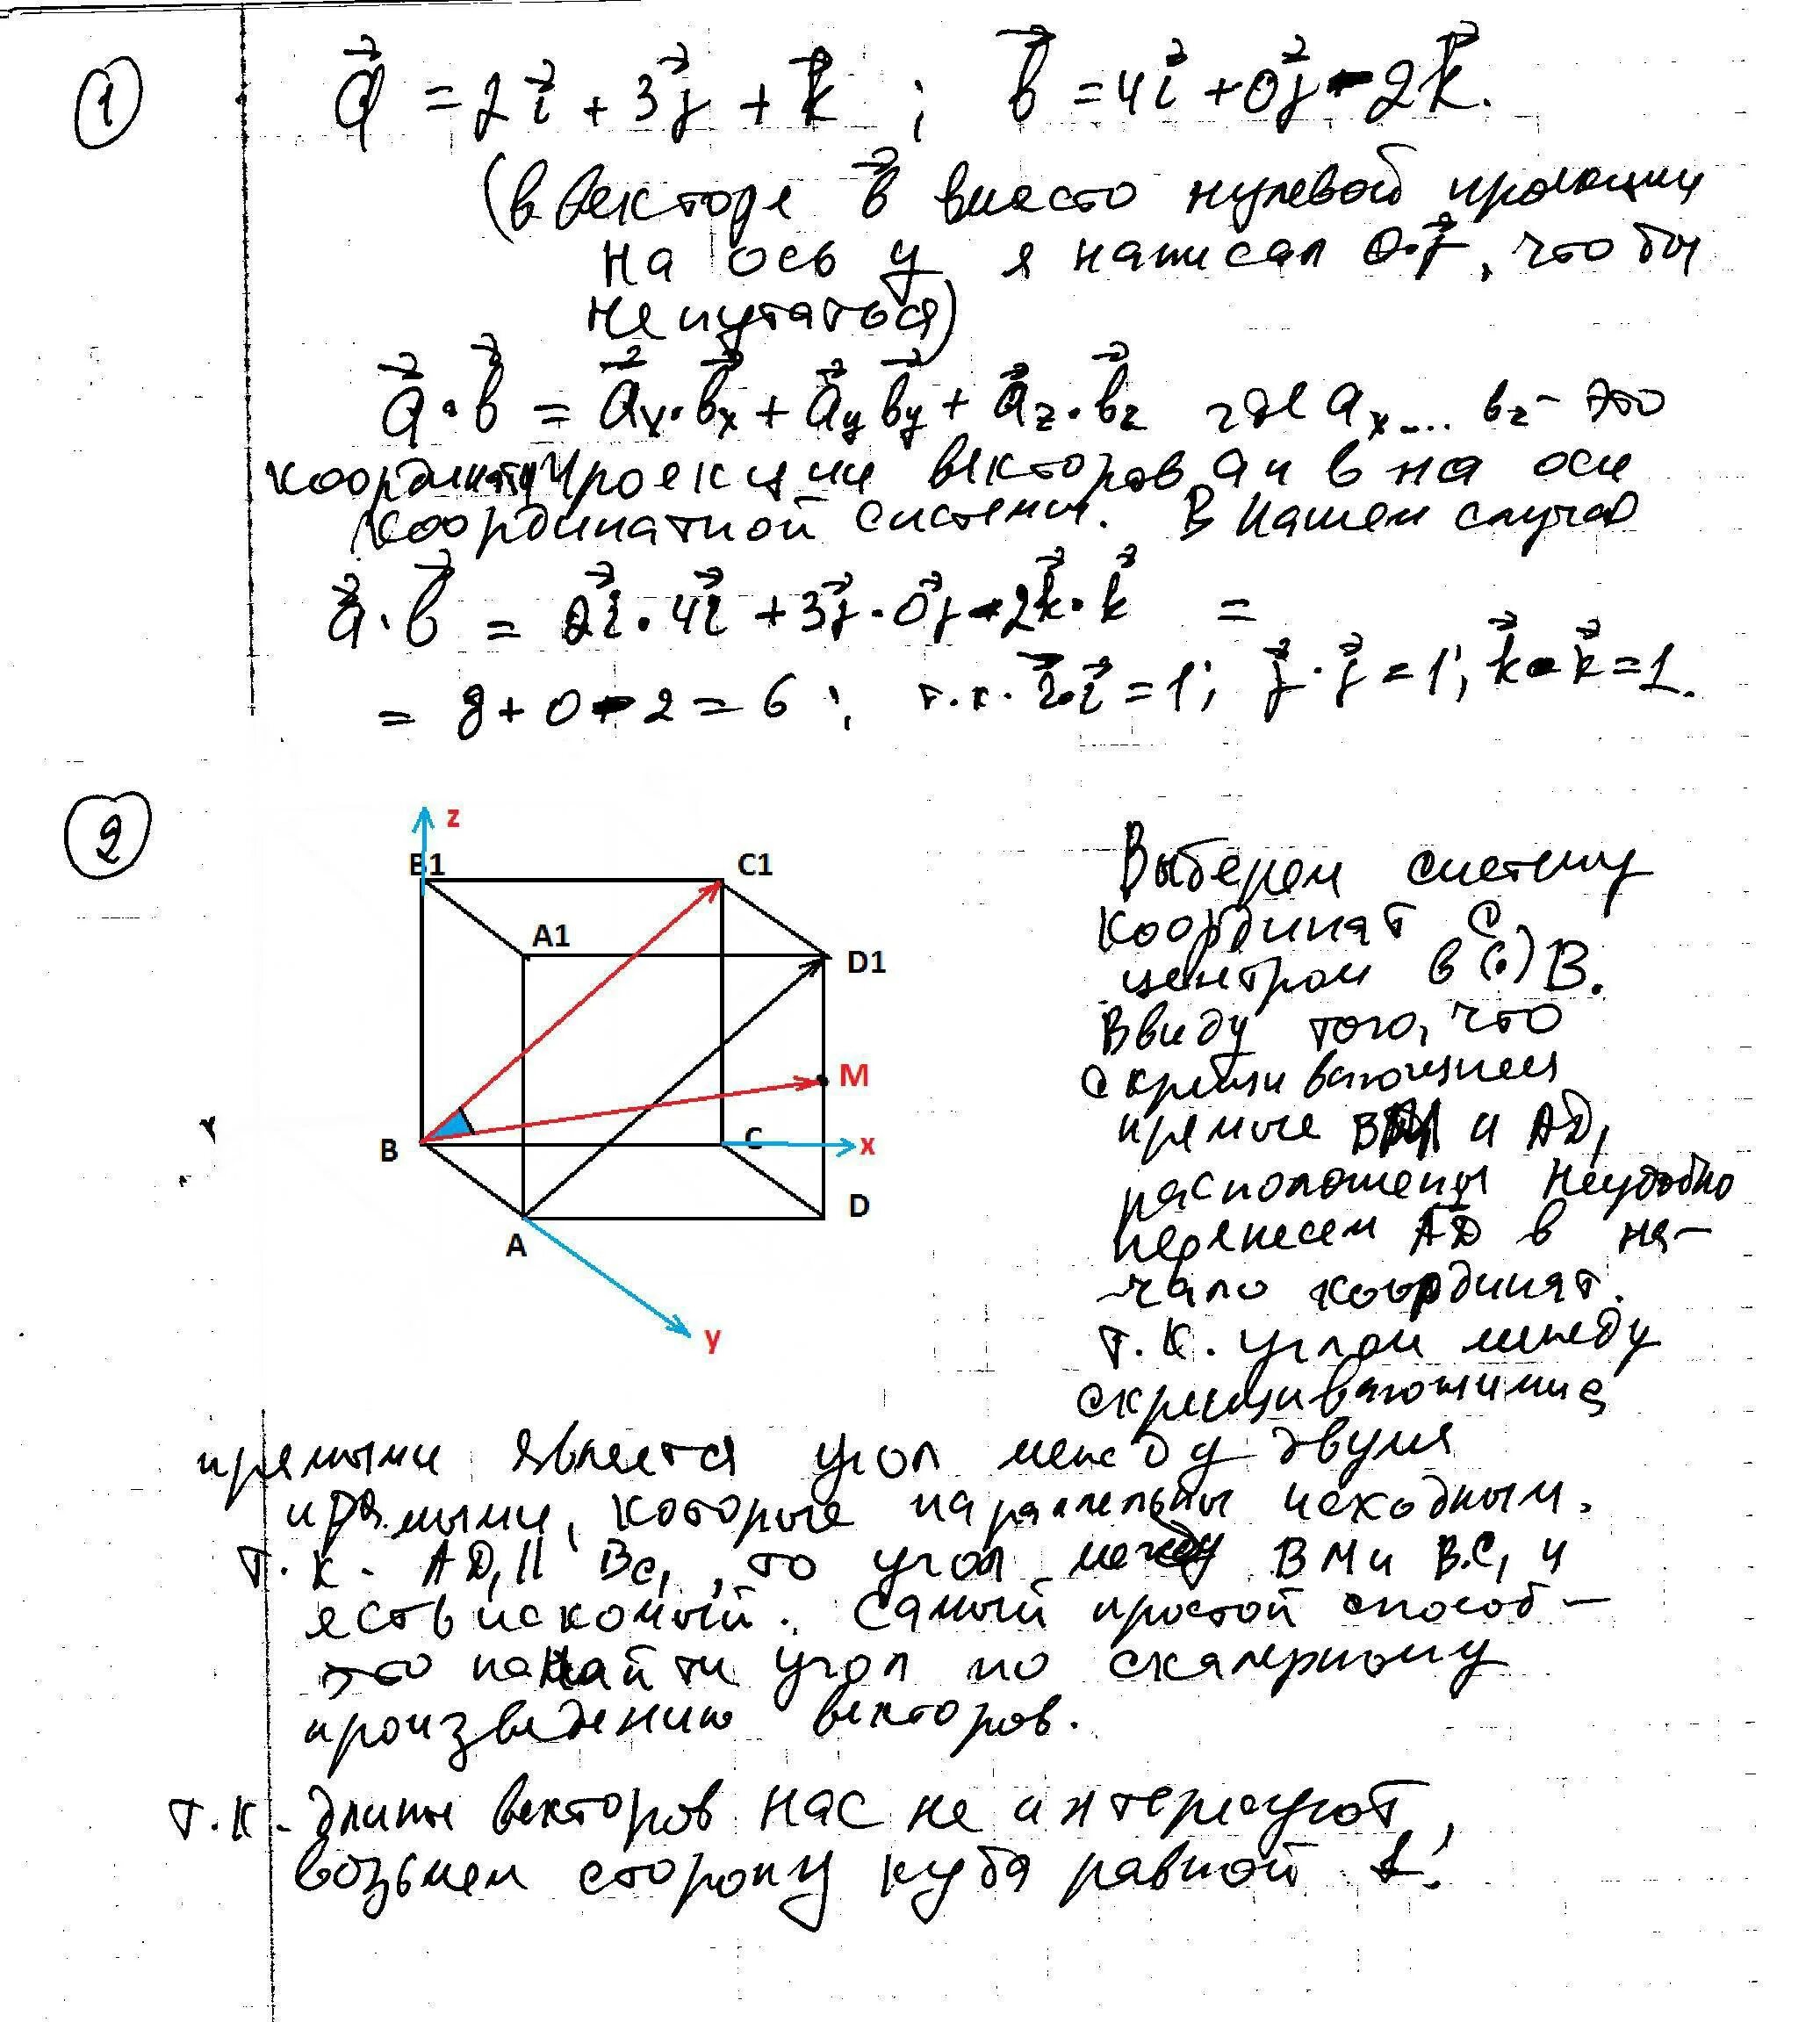 1
a⃗ = 2i⃗ + 3j⃗ + k⃗ ; b⃗ = 4i⃗ + 0j⃗ - 2k⃗.
(в векторе b⃗ вместо нулевой проекции
на ось y я написал 0·j⃗, что бы
не путаться)
a⃗·b⃗ = a⃗x·b⃗x + a⃗y b⃗y + a⃗z·b⃗z где ax.... bz - это
координаты проекции векторов a и b на оси
координатной системы. В нашем случае
a⃗·b⃗ = 2i⃗·4i⃗ + 3j⃗·0j⃗ - 2k⃗·k⃗ =
= 8 + 0 - 2 = 6 ; т.к. i⃗·i⃗ = 1; j⃗·j⃗ = 1; k⃗·k⃗ = 1.
2
z
B1 C1
A1
D1
M
B C x
D
A
y
Выберем систему
координат с
центром в (·) B.
Ввиду того, что
скрещивающиеся
прямые BM и AD1
расположены неудобно
перенесем AD1 в на-
чало координат.
Т.К. углом между
скрещивающимися
прямыми является угол между двумя
прямыми, которые параллельны исходным.
Т.К. AD1 || BC1, то угол между BM и BC1 и
есть искомый. Самый простой способ -
это найти угол по скалярному
произведению векторов.
Т.К. длины векторов нас не интересуют,
возьмем сторону куба равной 1.